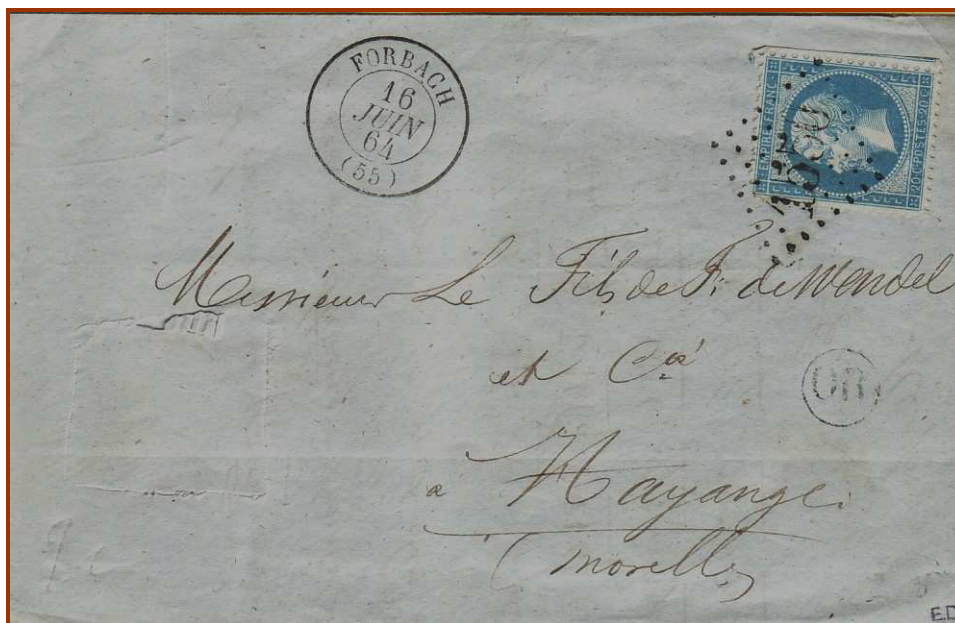 FORBACH
16
JUIN
64
(55)
EMPIRE FRANC
20 C POSTES 20 C
Messieurs Le Fils de F. de Wendel
et Cie
OR
à Hayange
(Moselle)
E.D